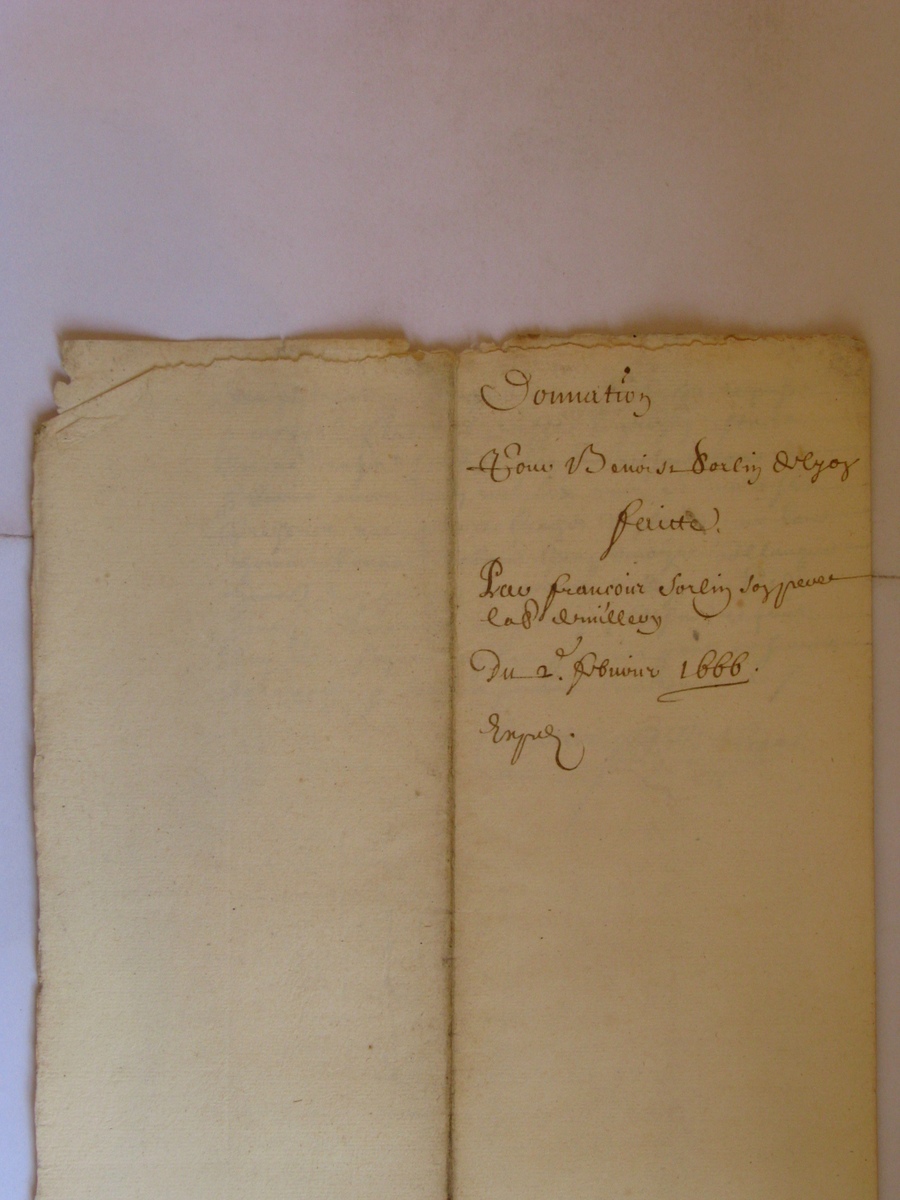 Donnation
Pour Benoist Sorlin de lyon
faicte.
Par francois Sorlin son pere
lab^r de millery
Du 2^e. febvrier 1666.
Exped.